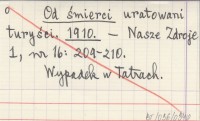 Od śmierci uratowani
turyści. 1910. — Nasze Zdroje
1, nr 16: 209-210.
Wypadek w Tatrach.